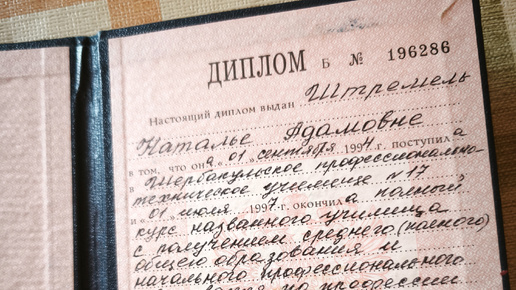 ДИПЛОМ Б № 196286
Настоящий диплом выдан Штремель
Наталье Адамовне
в том, что она „01 „ сентября 1994 г. поступила
в Шербакульское профессионально-
техническое училище №17
и „01 „ июля 1997 г. окончила полный
курс названного училища
с получением среднего (полного)
общего образования и
начального профессионального
по профессии